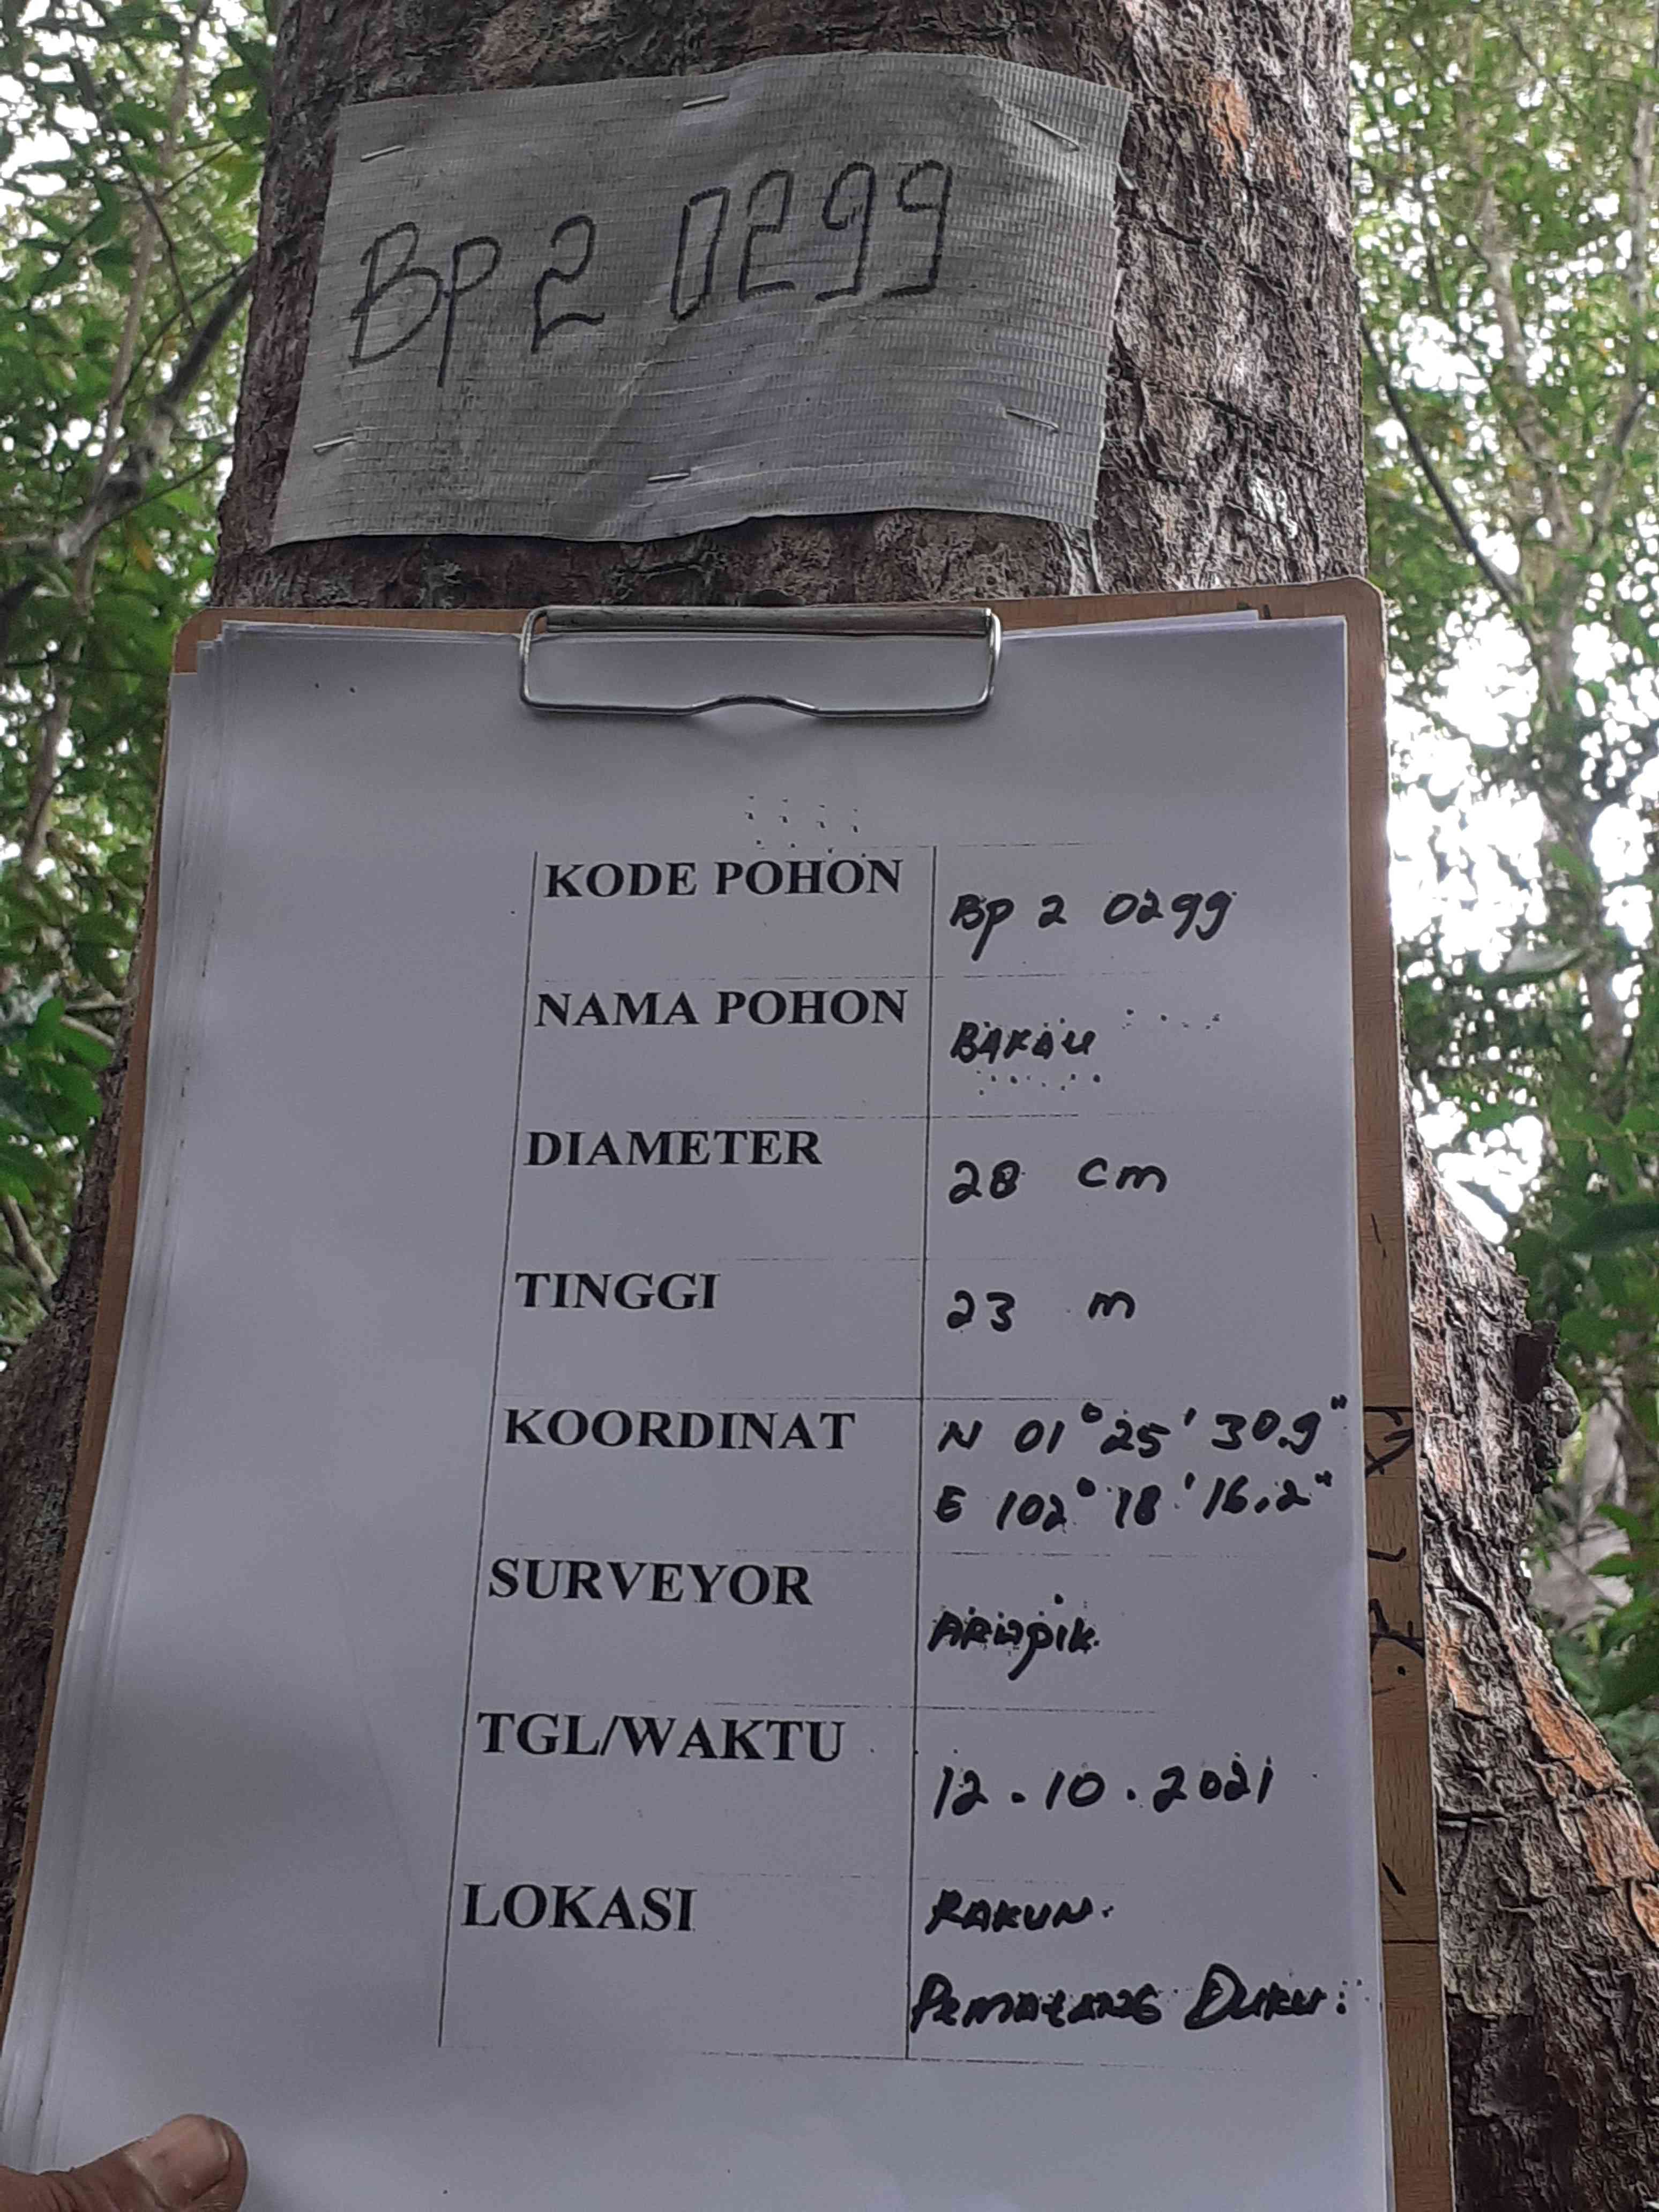 BP 2 0299
KODE POHON
BP 2 0299
NAMA POHON
BAKAU
DIAMETER
28 cm
TINGGI
23 m
KOORDINAT
N 01° 25' 30.9"
E 102° 18' 16.2"
SURVEYOR
TGL/WAKTU
12.10.2021
LOKASI
RAKUN.
PEMATANG DUKU.